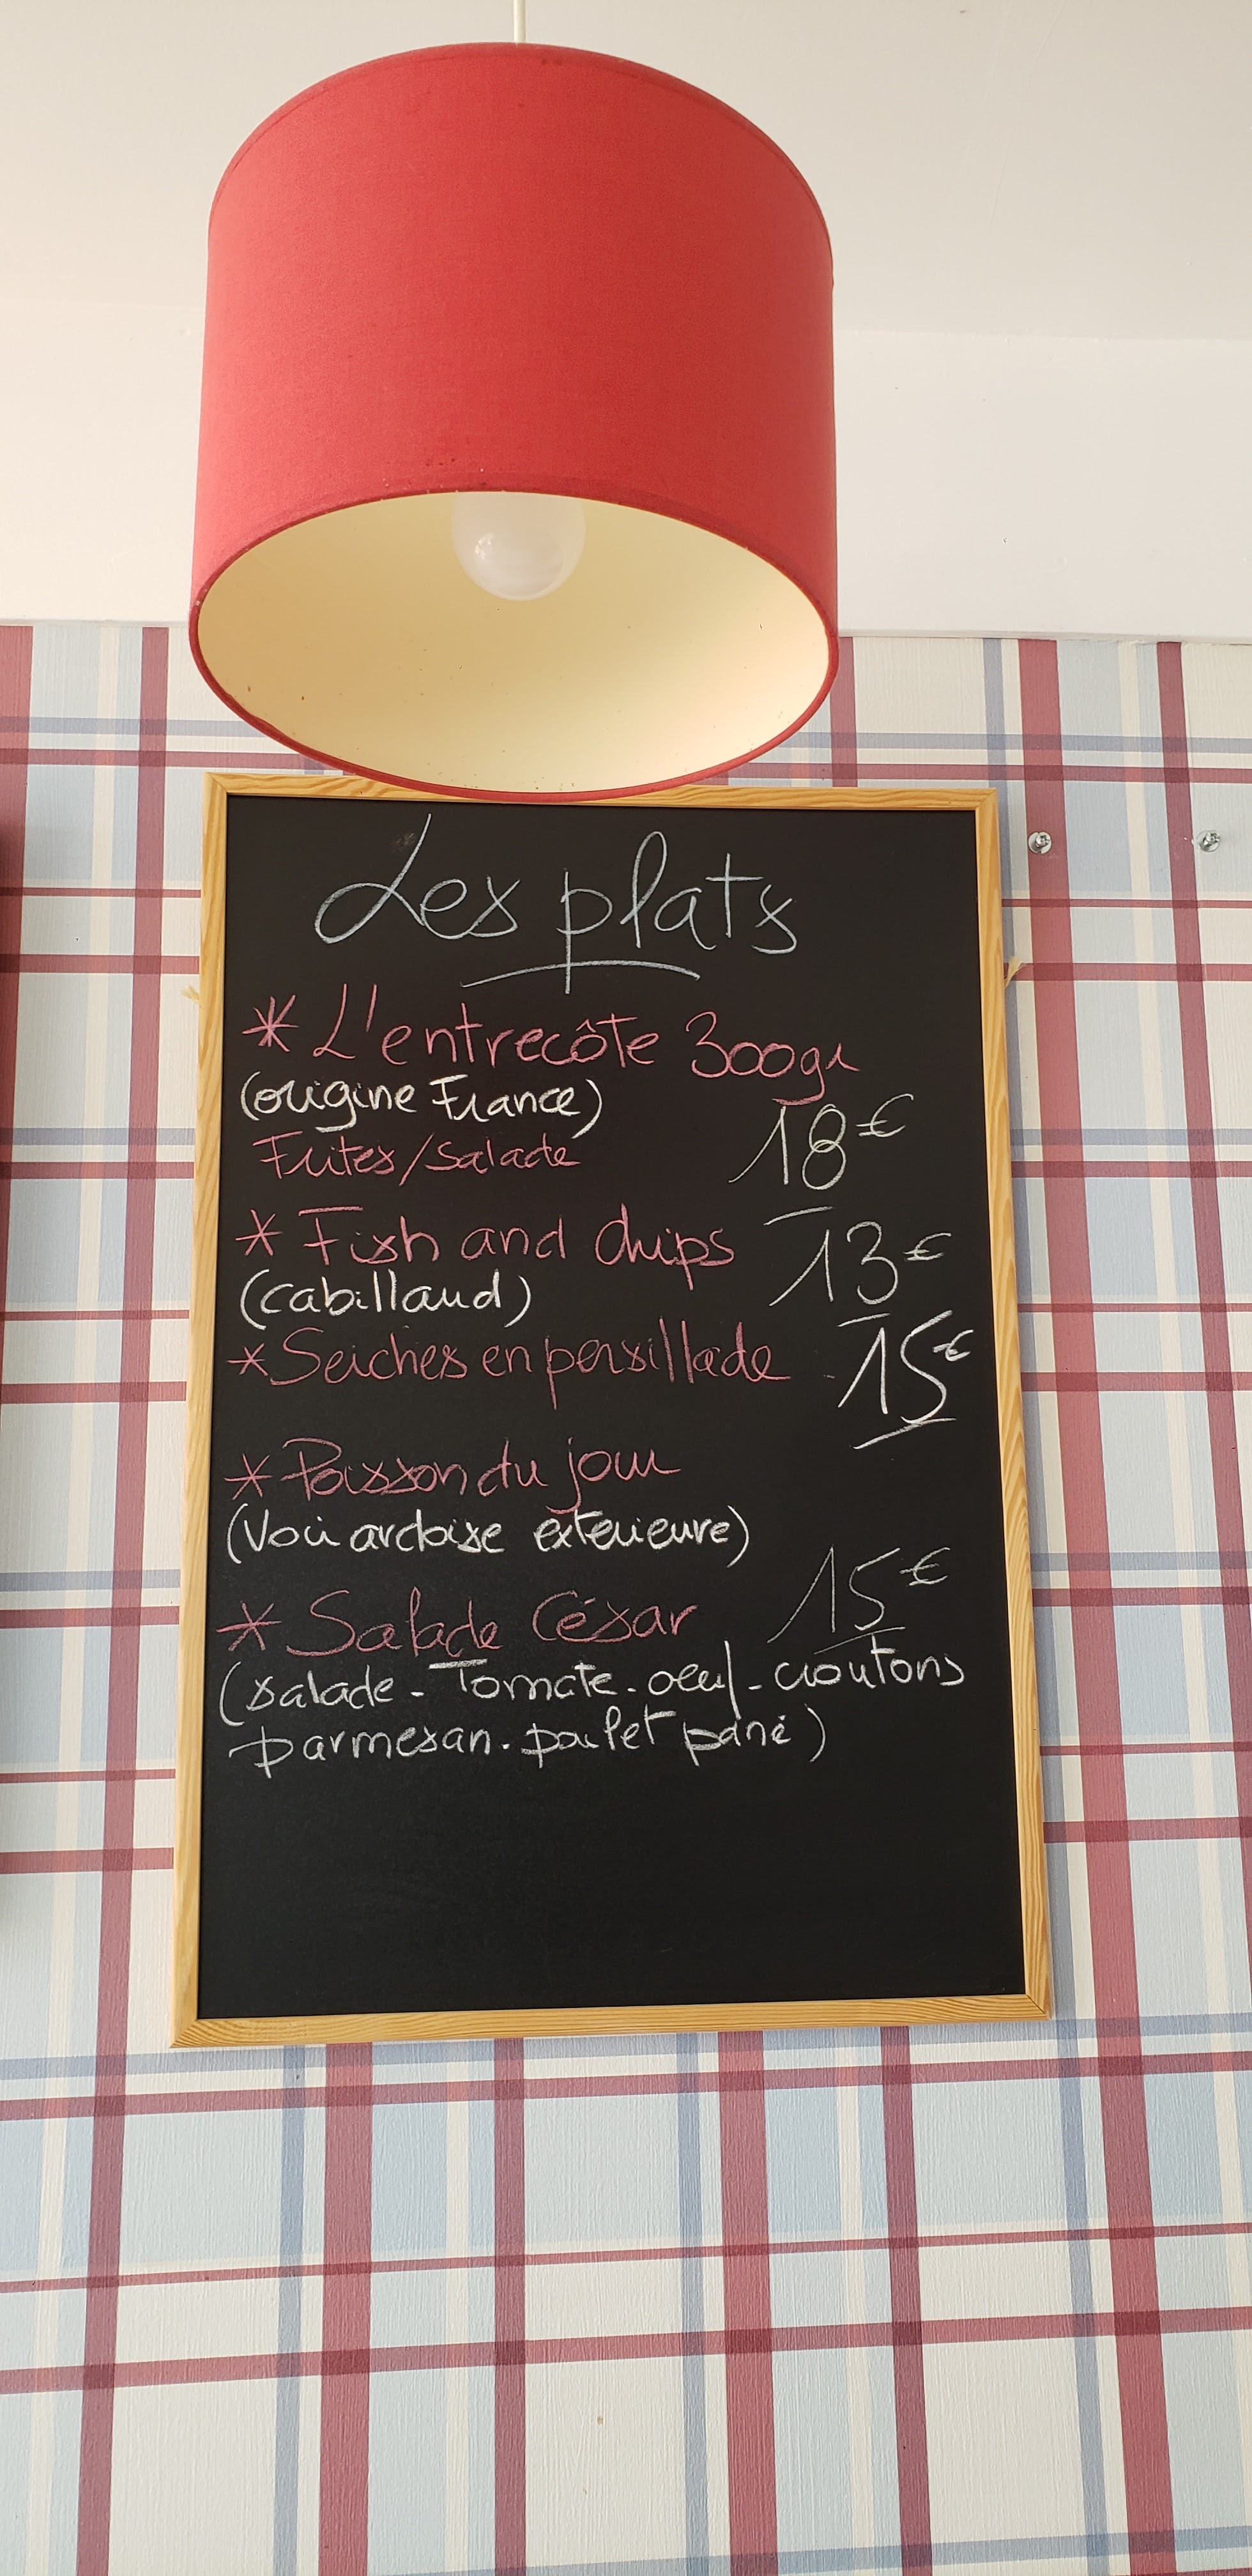 Les plats
* L'entrecôte 300gr
(origine France)
18€
Frites/Salade
* Fish and chips 13€
(cabillaud)
* Seiches en persillade 15€
* Poisson du jour
(Voir ardoise extérieure)
* Salade César 15€
(salade - Tomate - oeuf - croutons
parmesan - poulet pané)